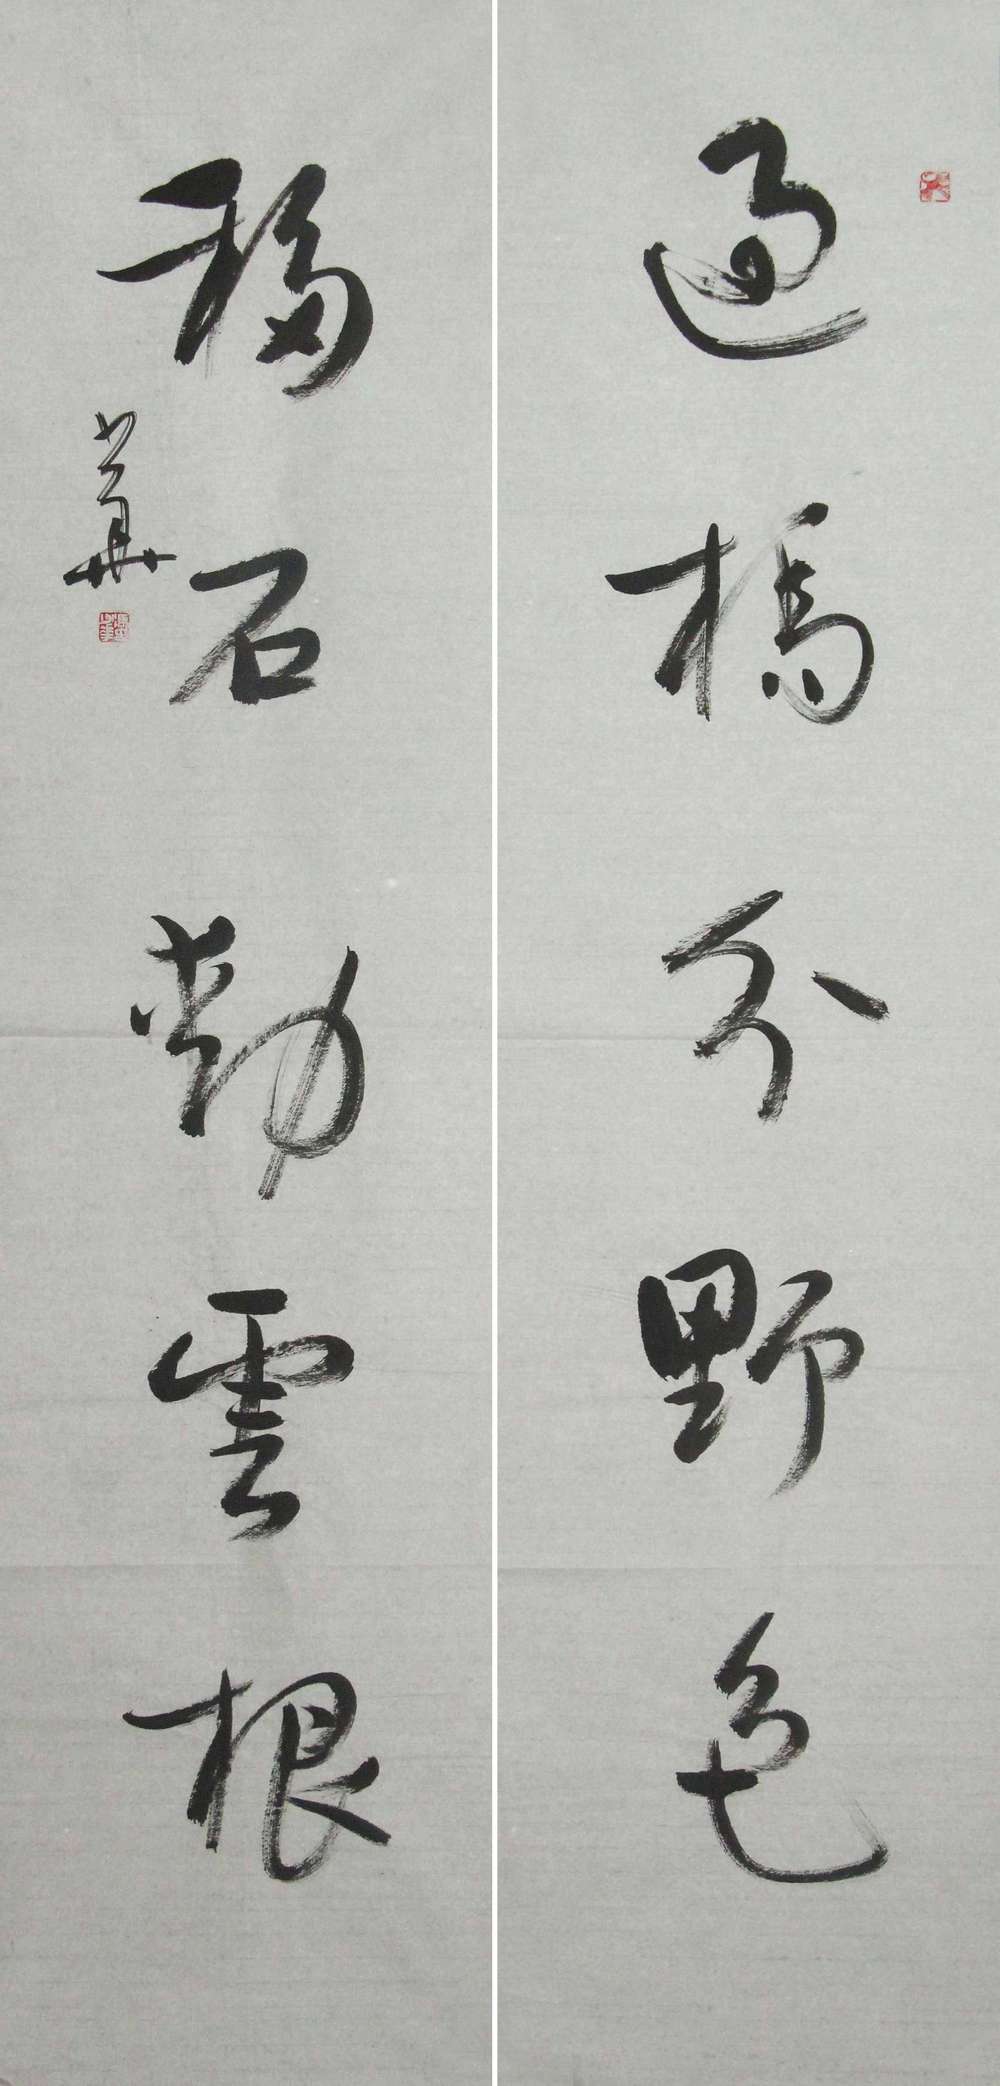 過橋分野色
移石動雲根
華